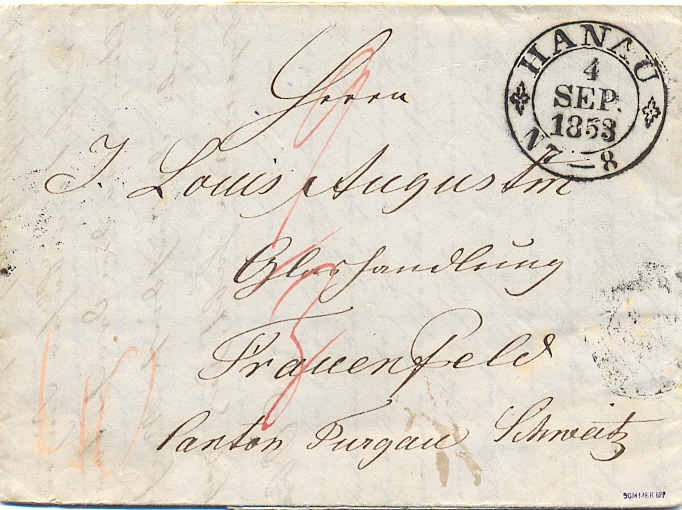 HANAU
4
SEP.
1853
N 7–8
Herrn
J. Louis Augustin
Glashandlung
Frauenfeld
Canton Turgau Schweitz